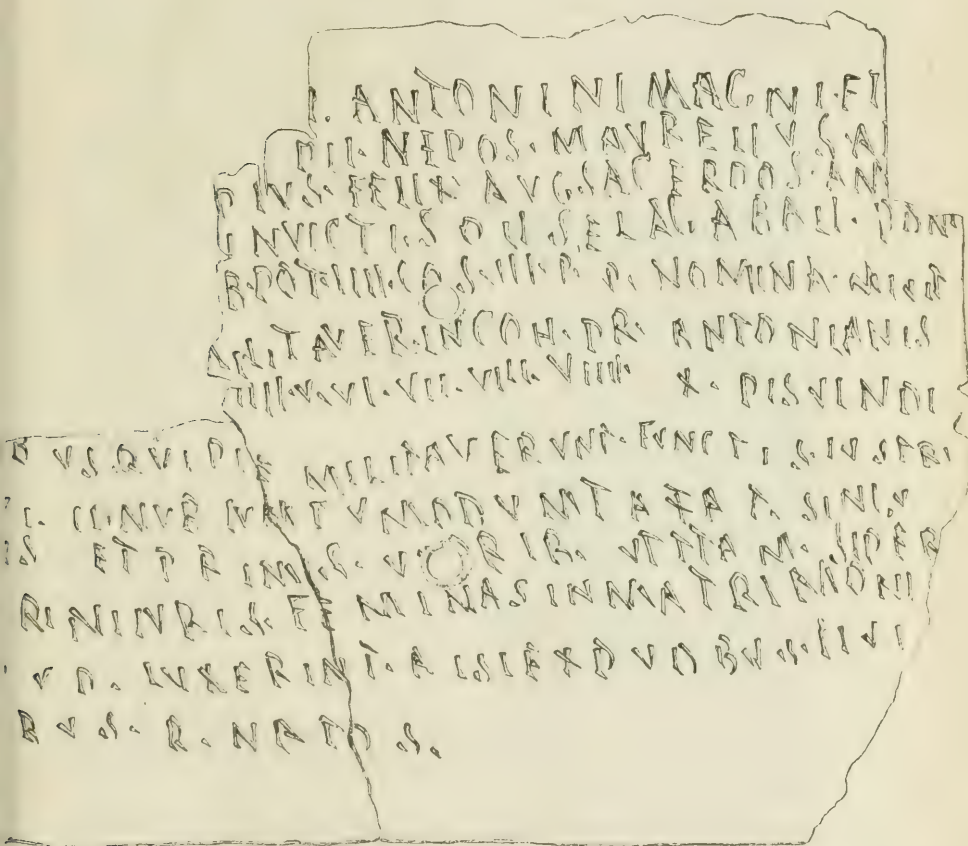 I. ANTONINI MAG. NI. FI
DII. NEPOS. M AVRELIVS. A
PIVS. FELIX AVG. SACERDOS. AN
INVICTI. SOLI S ELAG. ABALI. PON
R. POT. IIII. COS. III. P. P. NOMINA
ANI. TAVER. IN COH. PR. ANTONIANIS
IIII. V. VI. VII. VIII. VIIII. X. PIS VINDI
BVS QVI PIE MILITAVERVNT. FVNCTI. S. IVS TRI.
VM DVMTAXAT. SINI. V
IS ET PRIMI. S. VTITAM. SIPER
RI NI IVRIS. FE MINAS IN MATRI
VD. IVXERINT. EX DVOBVS.
BVS. R. NATOS.